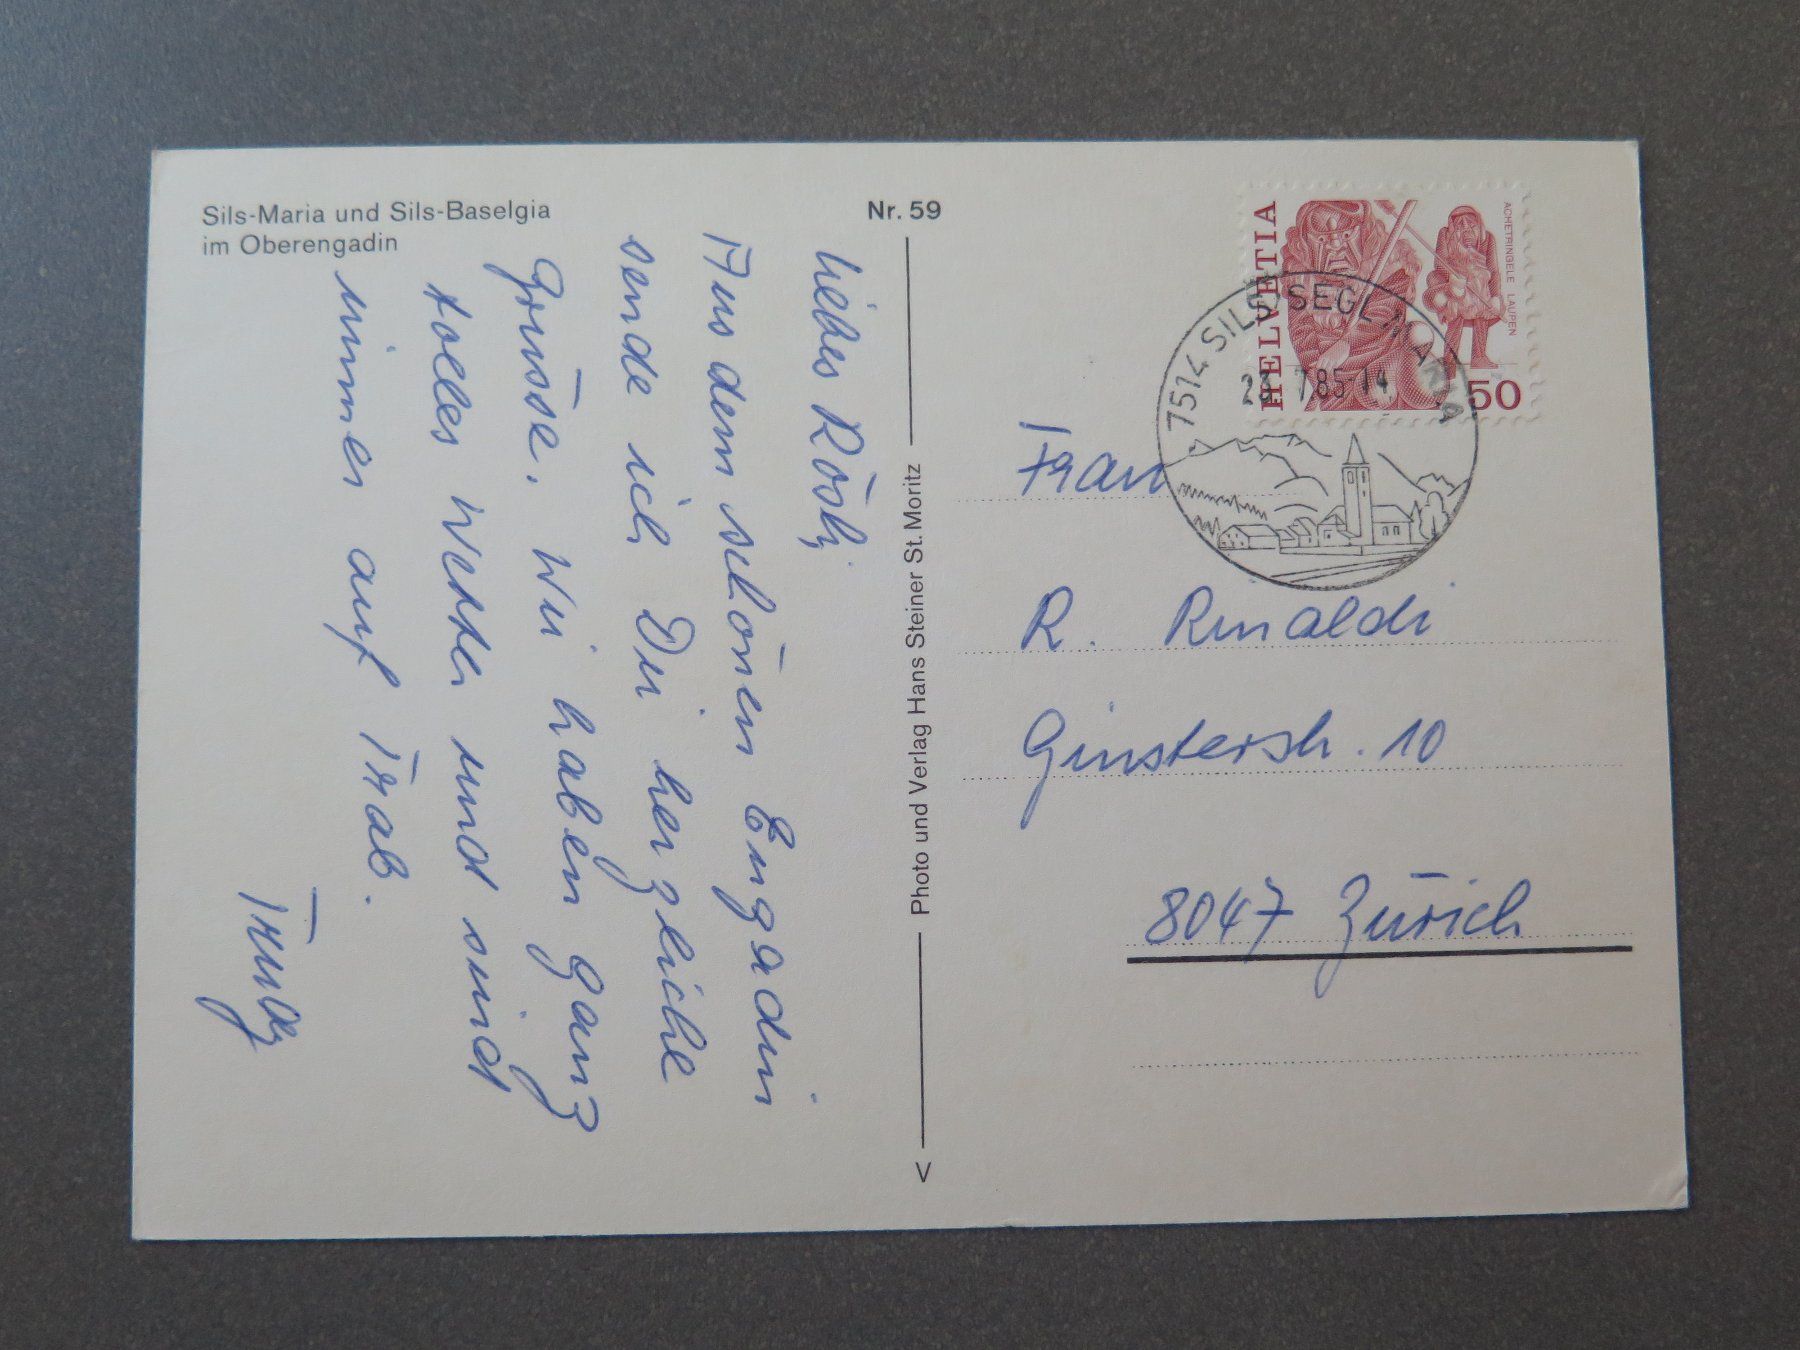 Sils-Maria und Sils-Baselgia
im Oberengadin
Nr. 59
Liebes Rösli,
Aus dem schönen Engadin
sende ich Dir herzliche
Grüsse. Wir haben ganz
tolles Wetter und sind
immer auf Trab.
Trudy
Photo und Verlag Hans Steiner St. Moritz
HELVETIA
ACHETRINGELE LAUPEN
50
7514 SILS/SEGL MARIA
23. 7.85-14
Frau
R. Rinaldi
Ginsterstr. 10
8047 Zürich